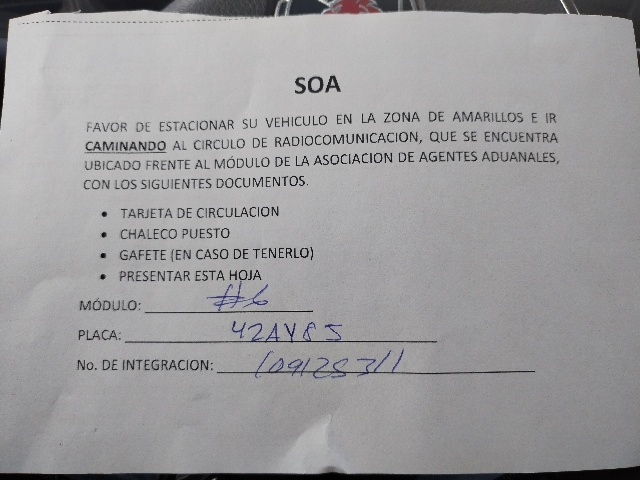 SOA
FAVOR DE ESTACIONAR SU VEHICULO EN LA ZONA DE AMARILLOS E IR
CAMINANDO AL CIRCULO DE RADIOCOMUNICACION, QUE SE ENCUENTRA
UBICADO FRENTE AL MÓDULO DE LA ASOCIACION DE AGENTES ADUANALES,
CON LOS SIGUIENTES DOCUMENTOS.
• TARJETA DE CIRCULACION
• CHALECO PUESTO
• GAFETE (EN CASO DE TENERLO)
• PRESENTAR ESTA HOJA
MÓDULO: #6
PLACA: 42AY8J
No. DE INTEGRACION: 109128311